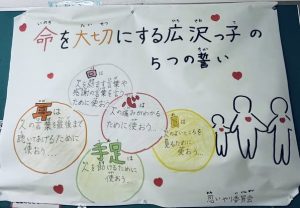 命を大切にする広沢っ子の
5つの誓い
口は
人を励ます言葉や
感謝の言葉を言う
ために使おう…
耳は
人の言葉を最後まで
聴いてあげるために
使おう…
心は
人の痛みがわかる
ために使おう…
目は
人のよいところを
見るために
使おう…
手足は
人を助けるために
使おう…
思いやり委員会